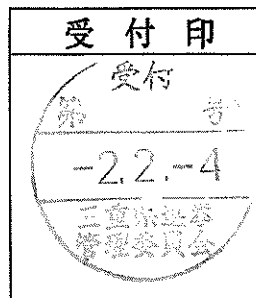 受付印
受付
第 号
-2.2.-4
三重県選挙
管理委員会